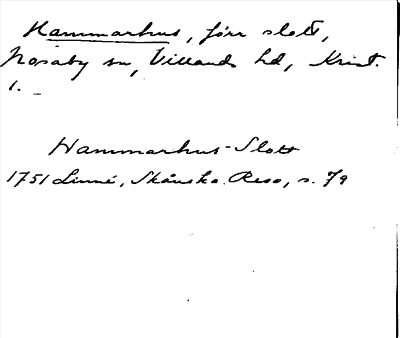 Hammarhus, förr slott,
Nosaby sn, Villands hd, Krist.
l.
Hammarhus-Slott
1751 Linné, Skånska Resa, s. 79